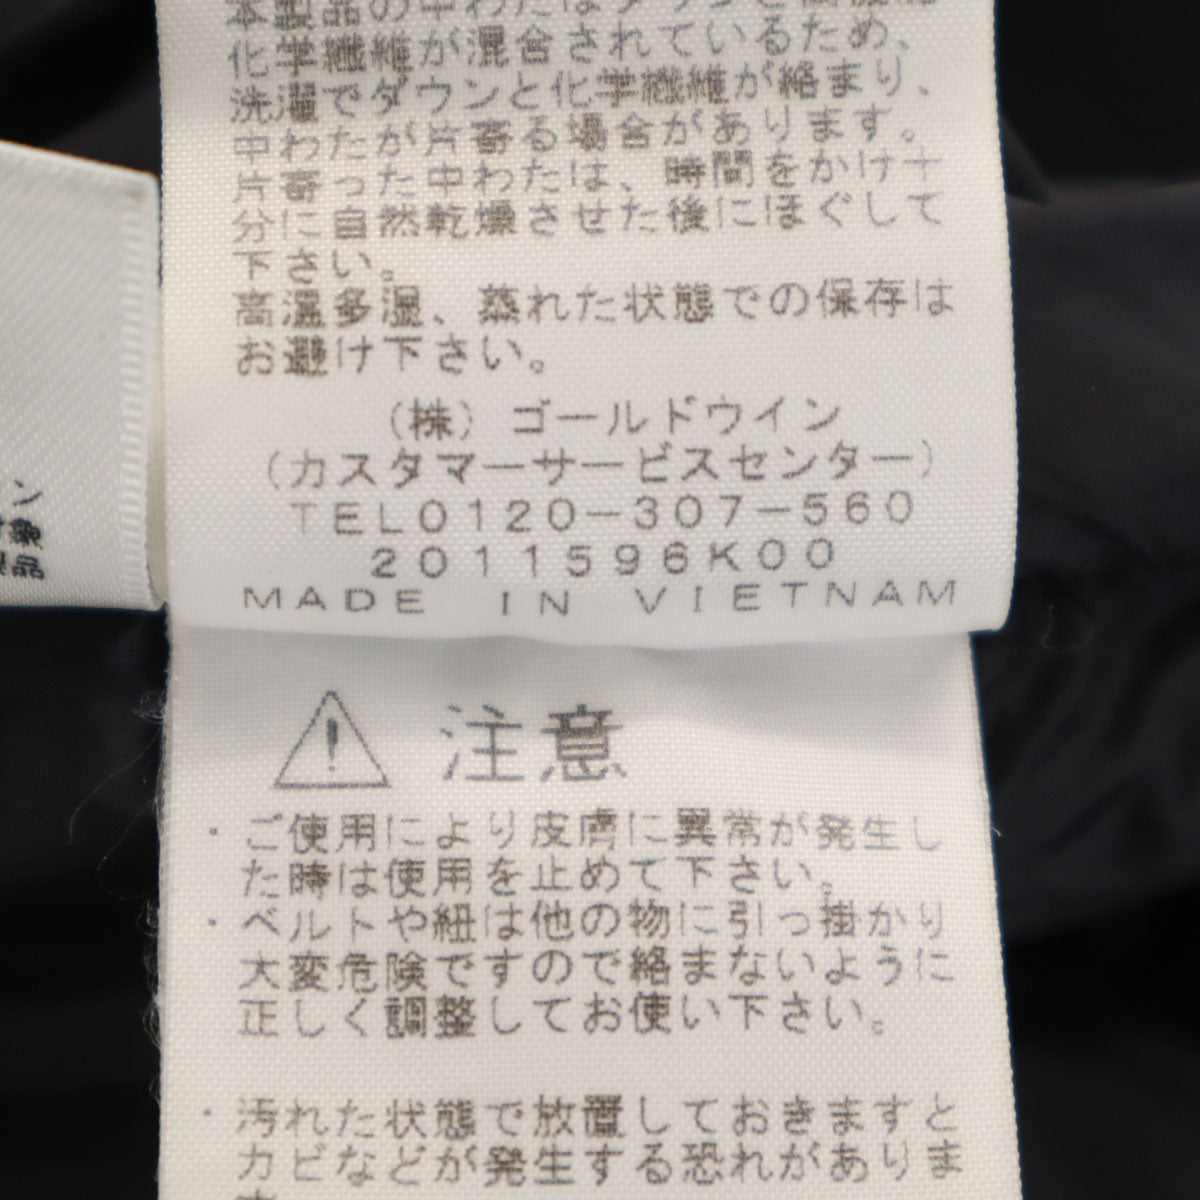 本製品の中わたはダウンと高機能
化学繊維が混合されているため、
洗濯でダウンと化学繊維が絡まり、
中わたが片寄る場合があります。
片寄った中わたは、時間をかけ十
分に自然乾燥させた後にほぐして
下さい。
高温多湿、蒸れた状態での保存は
お避け下さい。
(株)ゴールドウイン
(カスタマーサービスセンター)
TEL0120-307-560
2011596K00
MADE IN VIETNAM
ン
象
品
注意
・ご使用により皮膚に異常が発生し
た時は使用を止めて下さい。
・ベルトや紐は他の物に引っ掛かり
大変危険ですので絡まないように
正しく調整してお使い下さい。
・汚れた状態で放置しておきますと
カビなどが発生する恐れがありま